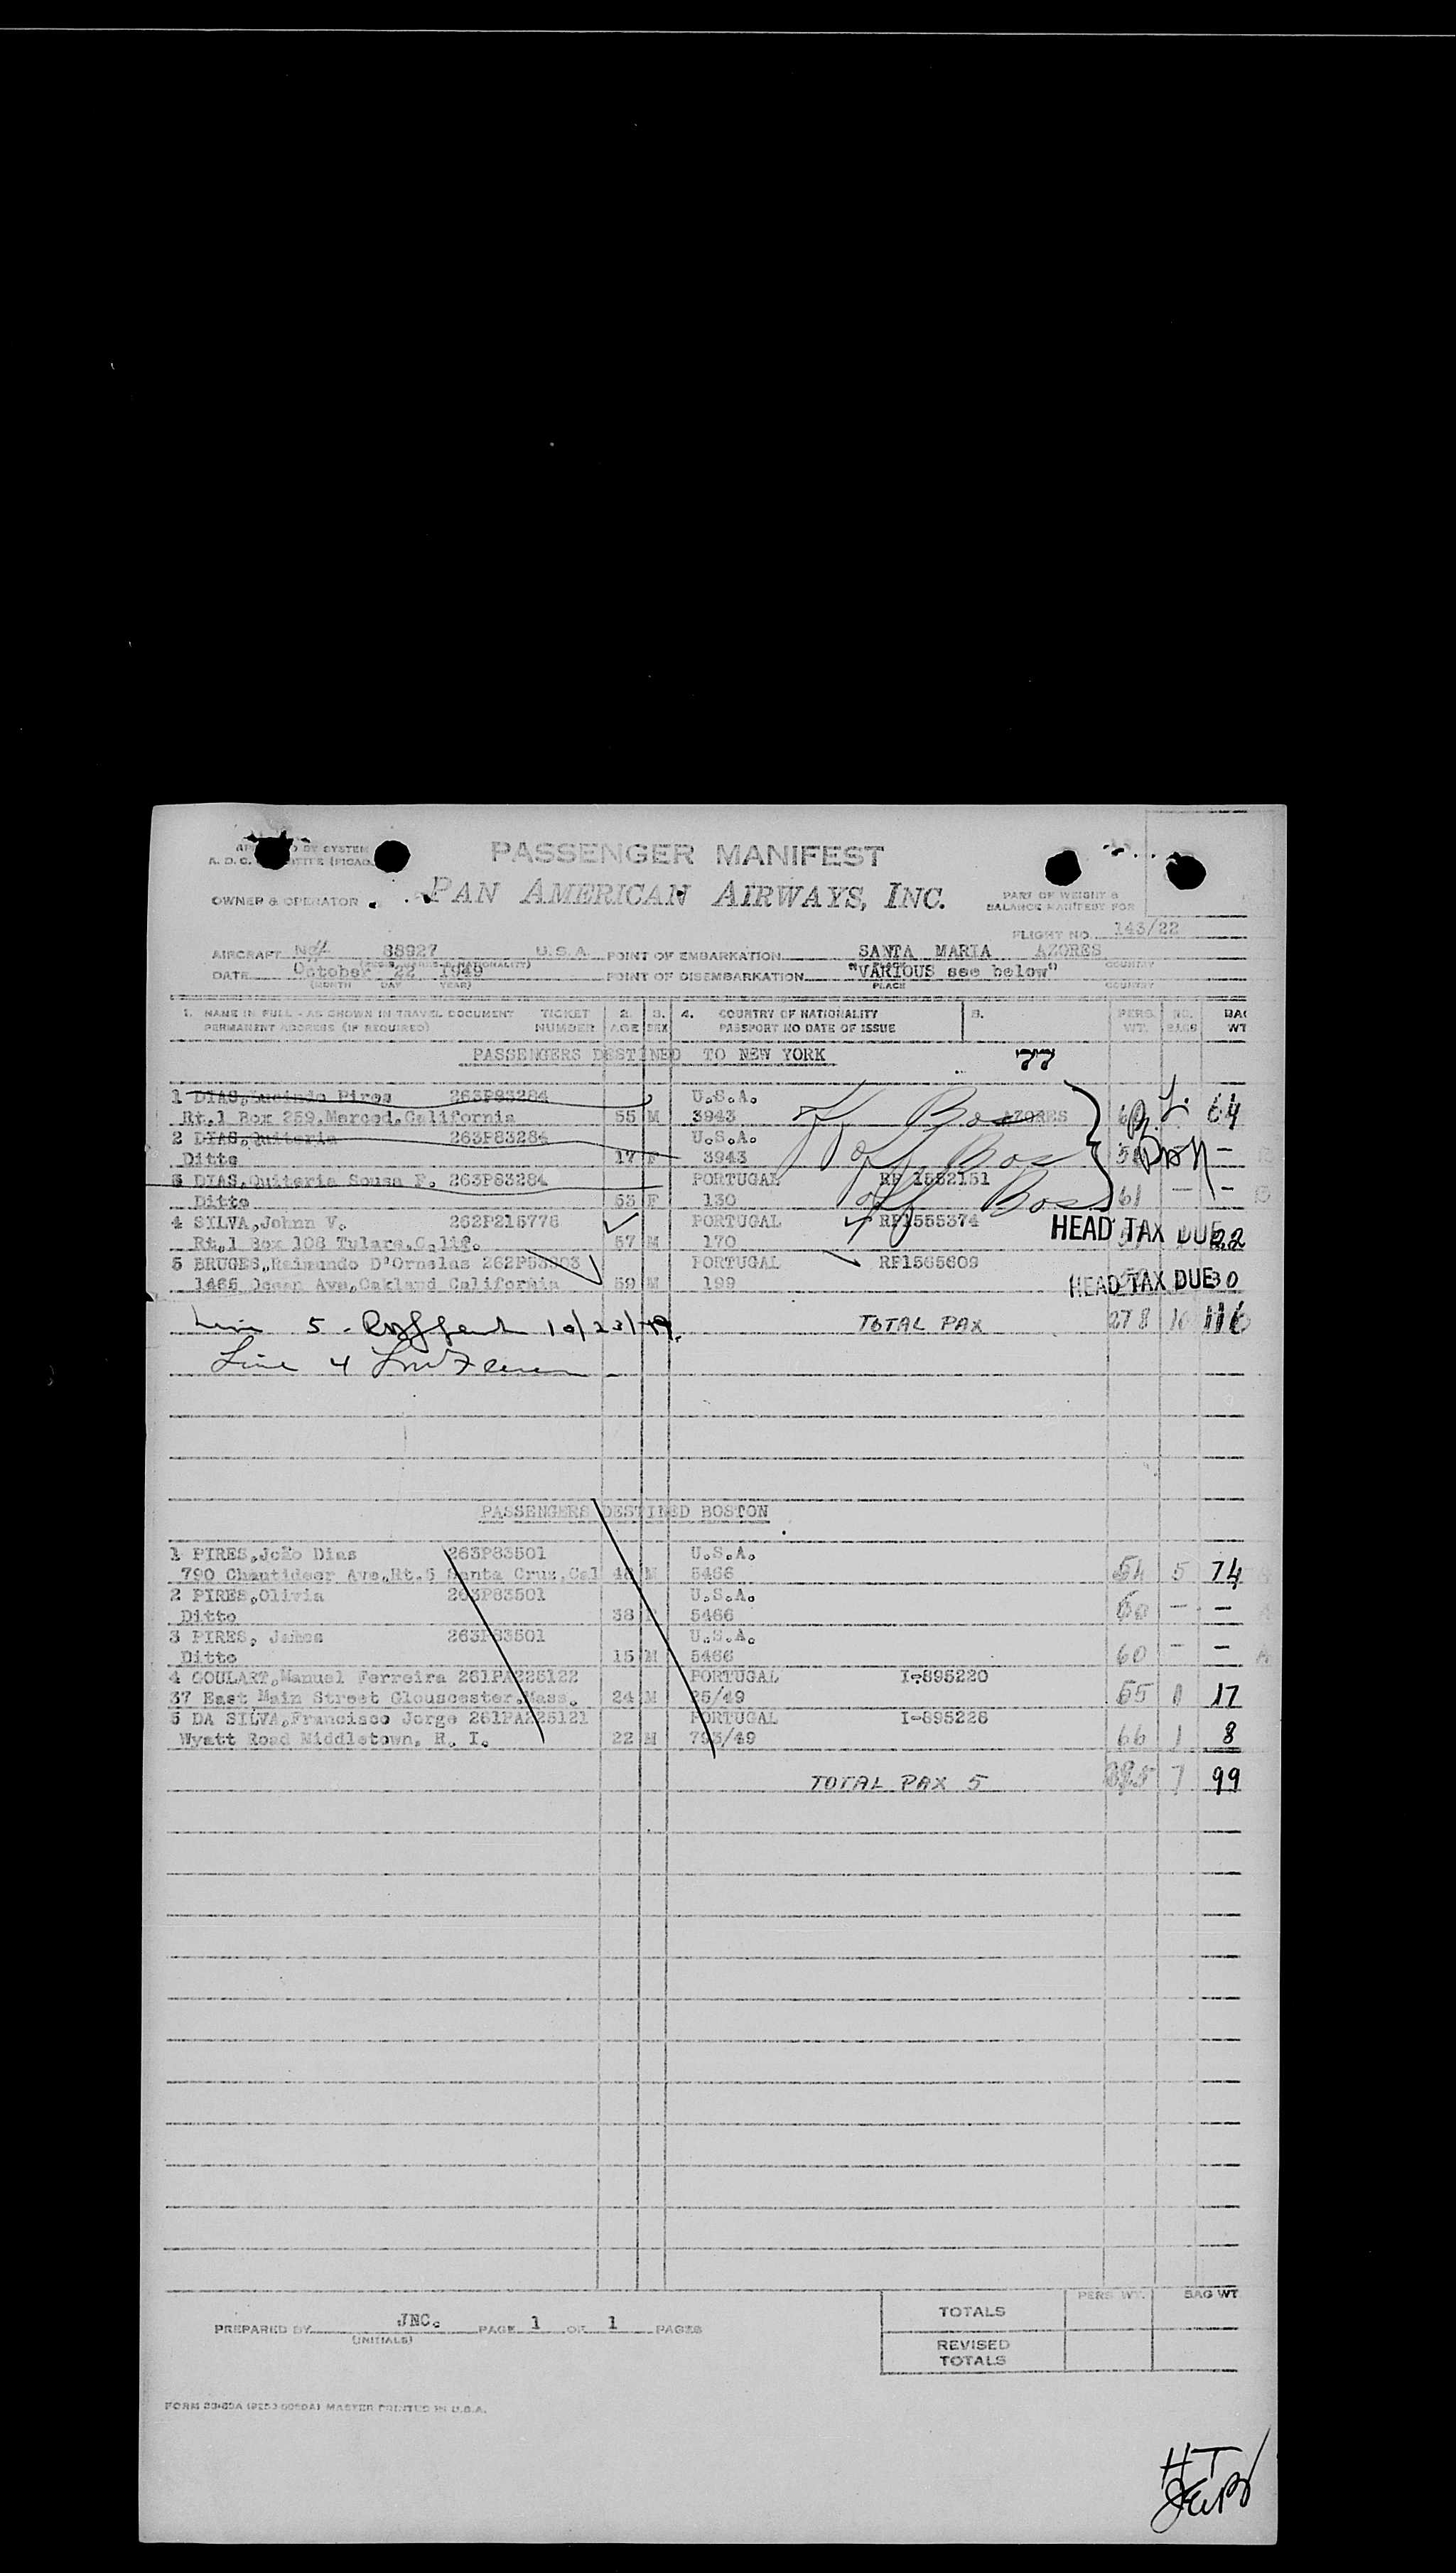 PASSENGER MANIFEST
PAN AMERICAN AIRWAYS, INC.
OWNER & OPERATOR
PART OF WEIGHT &
BALANCE MANIFEST FOR
FLIGHT NO. 143/22
AIRCRAFT 88927 U.S.A. POINT OF EMBARKATION SANTA MARIA AZORES
DATE October 22 1949 POINT OF DISEMBARKATION "VARIOUS see below"
(MONTH DAY YEAR) PLACE COUNTRY
1. NAME IN FULL - AS SHOWN IN TRAVEL DOCUMENT TICKET 2. 3. 4. COUNTRY OF NATIONALITY 5. PERS. NO. BAG
PERMANENT ADDRESS (IF REQUIRED) NUMBER AGE SEX PASSPORT NO DATE OF ISSUE WT. BAGS WT
PASSENGERS DESTINED TO NEW YORK 77
1 DIAS,Lucindo Pires 263P83284 U.S.A.
Rt.1 Box 259,Merced,California 55 M 3943 off Bos AZORES 64
2 DIAS,Quiteria 263P83284 U.S.A.
Ditto 17 F 3943 off Bos -
3 DIAS,Quiteria Sousa P. 263P83284 PORTUGAL RP 1552151
Ditto 53 F 130 off Bos 61 - -
4 SILVA,Johnn V. 262P215776 PORTUGAL RP1555374
Rt.1 Box 108 Tulare,Calif. 57 M 170 HEAD TAX DUE 22
5 BRUGES,Raimundo D'Ornelas PORTUGAL RP1565609
1465 Ocean Ave,Oakland California 59 M 199 HEAD TAX DUE 30
Line 5 - 10/23/49. TOTAL PAX 278 10 116
Line 4
PASSENGERS DESTINED BOSTON
1 PIRES,João Dias 263P83501 U.S.A.
790 Ave,Rt.5 Santa Cruz,Cal M 5466 54 5 74
2 PIRES,Olivia 263P83501 U.S.A.
Ditto 38 F 5466 60 - -
3 PIRES, James 263P83501 U.S.A.
Ditto 15 M 5466 60 - -
4 GOULART,Manuel Ferreira 261PA225122 PORTUGAL I-895220
37 East Main Street Glouscester,Mass. 24 M 25/49 55 1 17
5 DA SILVA,Francisco Jorge 261PA225121 PORTUGAL I-895226
Wyatt Road Middletown, R. I. 22 M 793/49 66 1 8
TOTAL PAX 5 7 99
PERS WT. BAG WT
TOTALS
PREPARED BY JNC. PAGE 1 OF 1 PAGES
(INITIALS)
REVISED
TOTALS
MASTER PRINTED IN U.S.A.
HT